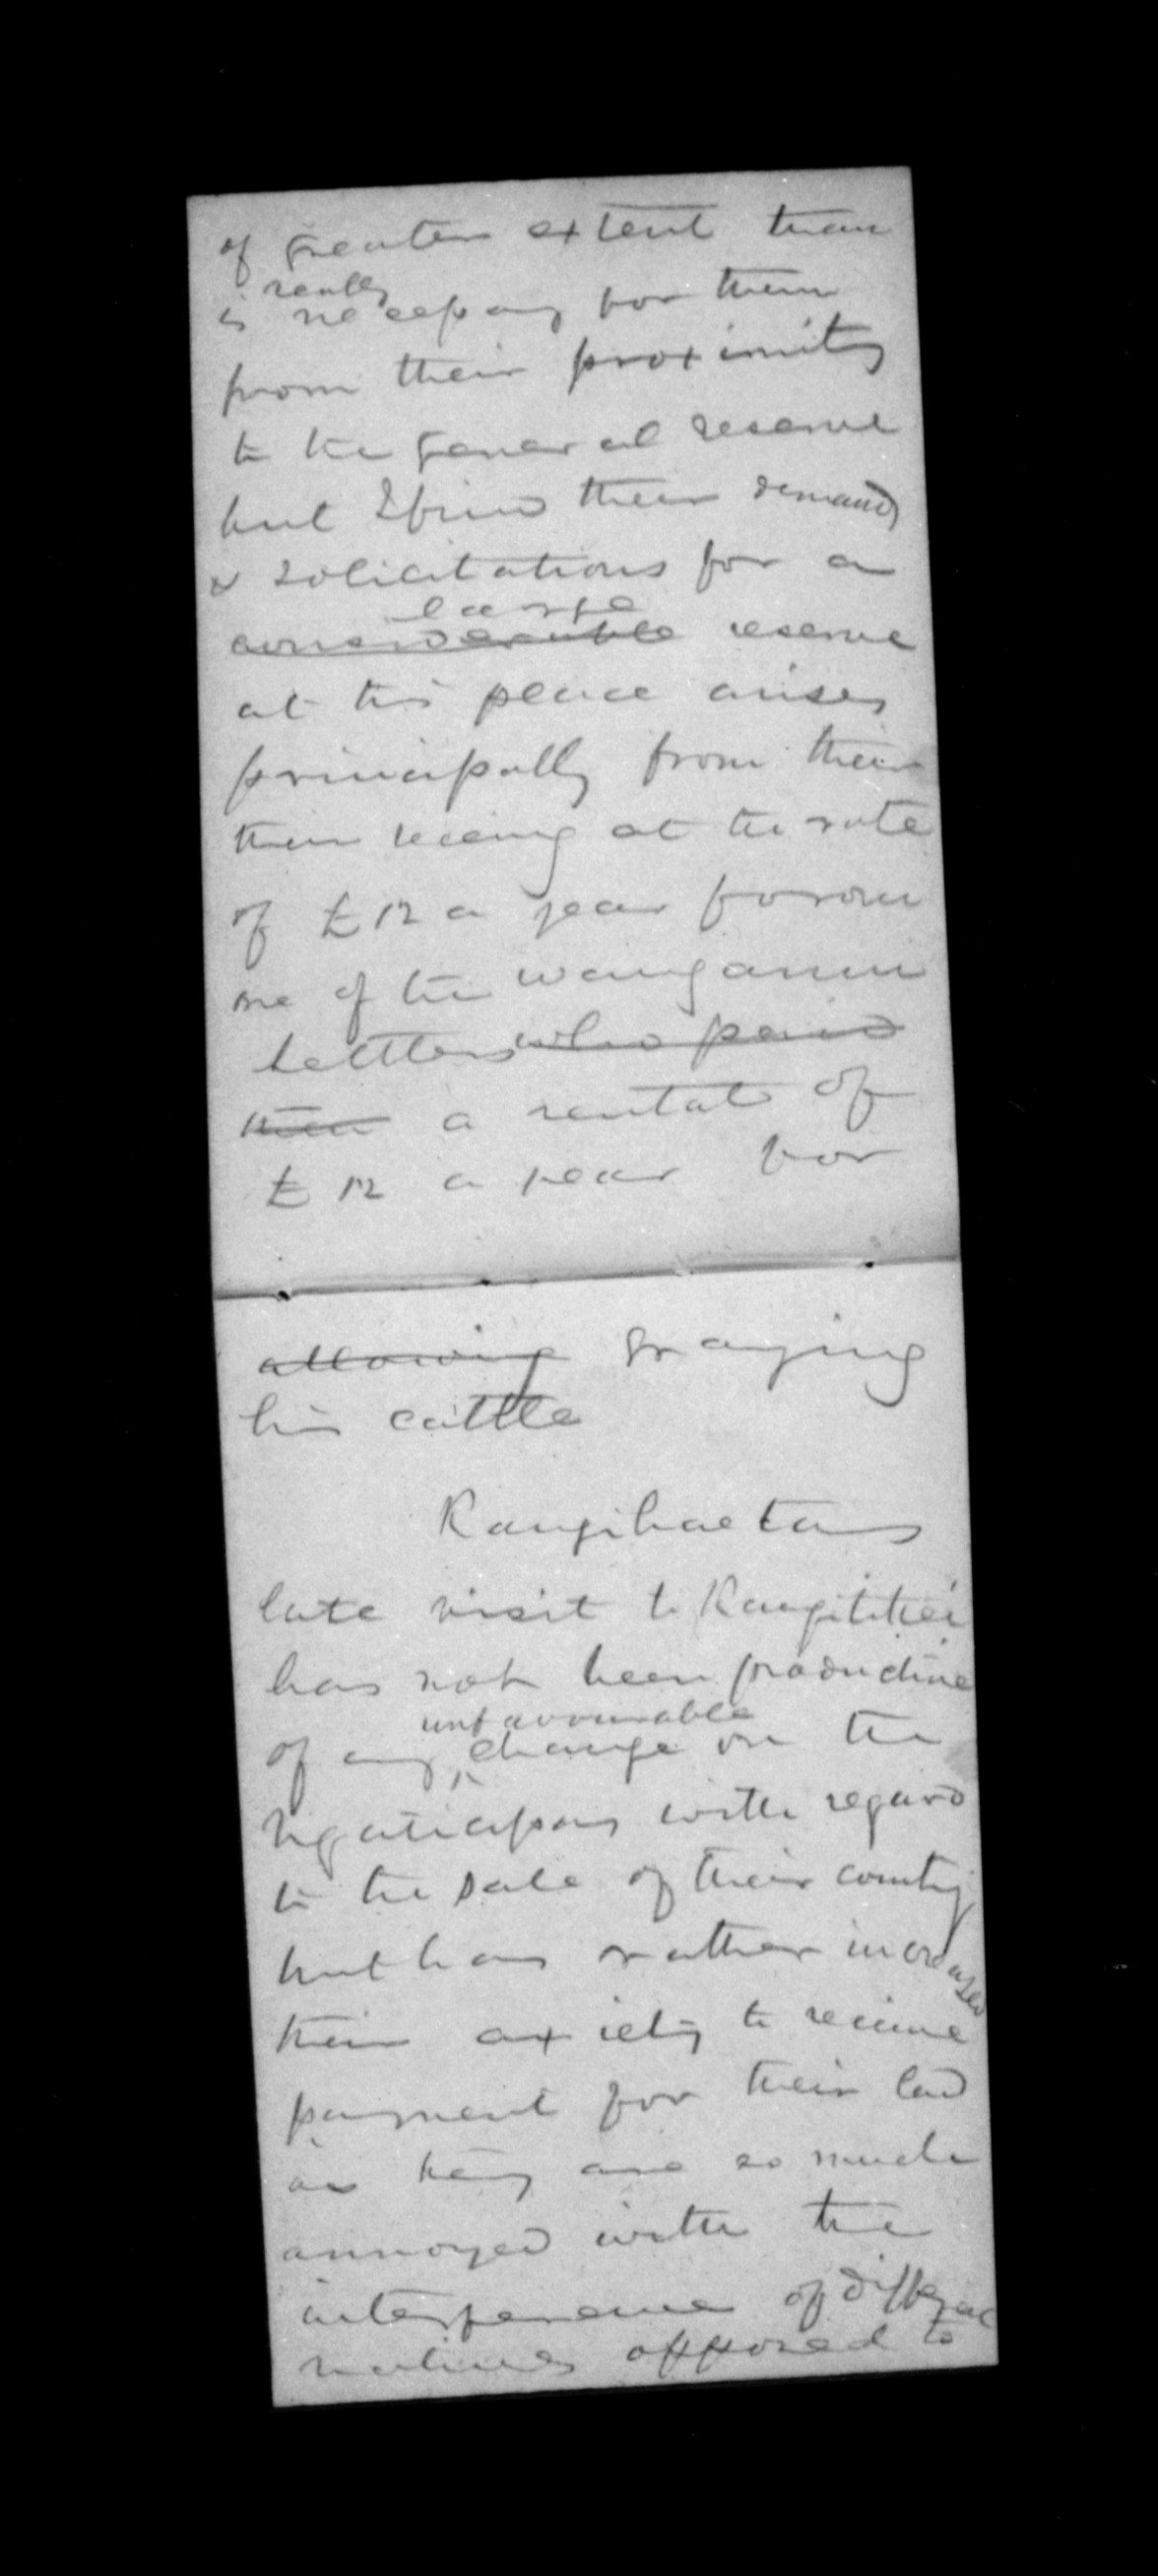 of greater extent than
really
is necessary for them
from their proximity
to the general reserve
but I find their demands
& solicitations for a
large
considerable reserve
at this place arises
principally from their
their receing at the rate
of £12 a year from
one of the Wanganui
settlers who paid
them a rental of
£12 a year for
allowing grazing
his cattle
Rangihaetas
late visit to Rangitikei
has not been productive
unfavourable
of any change on the
with regard
to the sale of their country
but has rather increased
their axiety to receive
payment for their land
as they are so much
annoyed with the
interference of different
natives opposed to